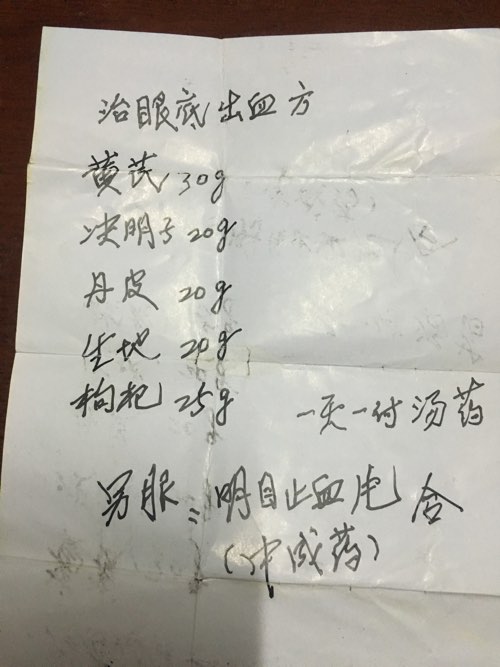 治眼底出血方
黄芪 30g
决明子 20g
丹皮 20g
生地 20g
枸杞 25g
一天一付 汤药
另服: 明目止血片
(中成药)